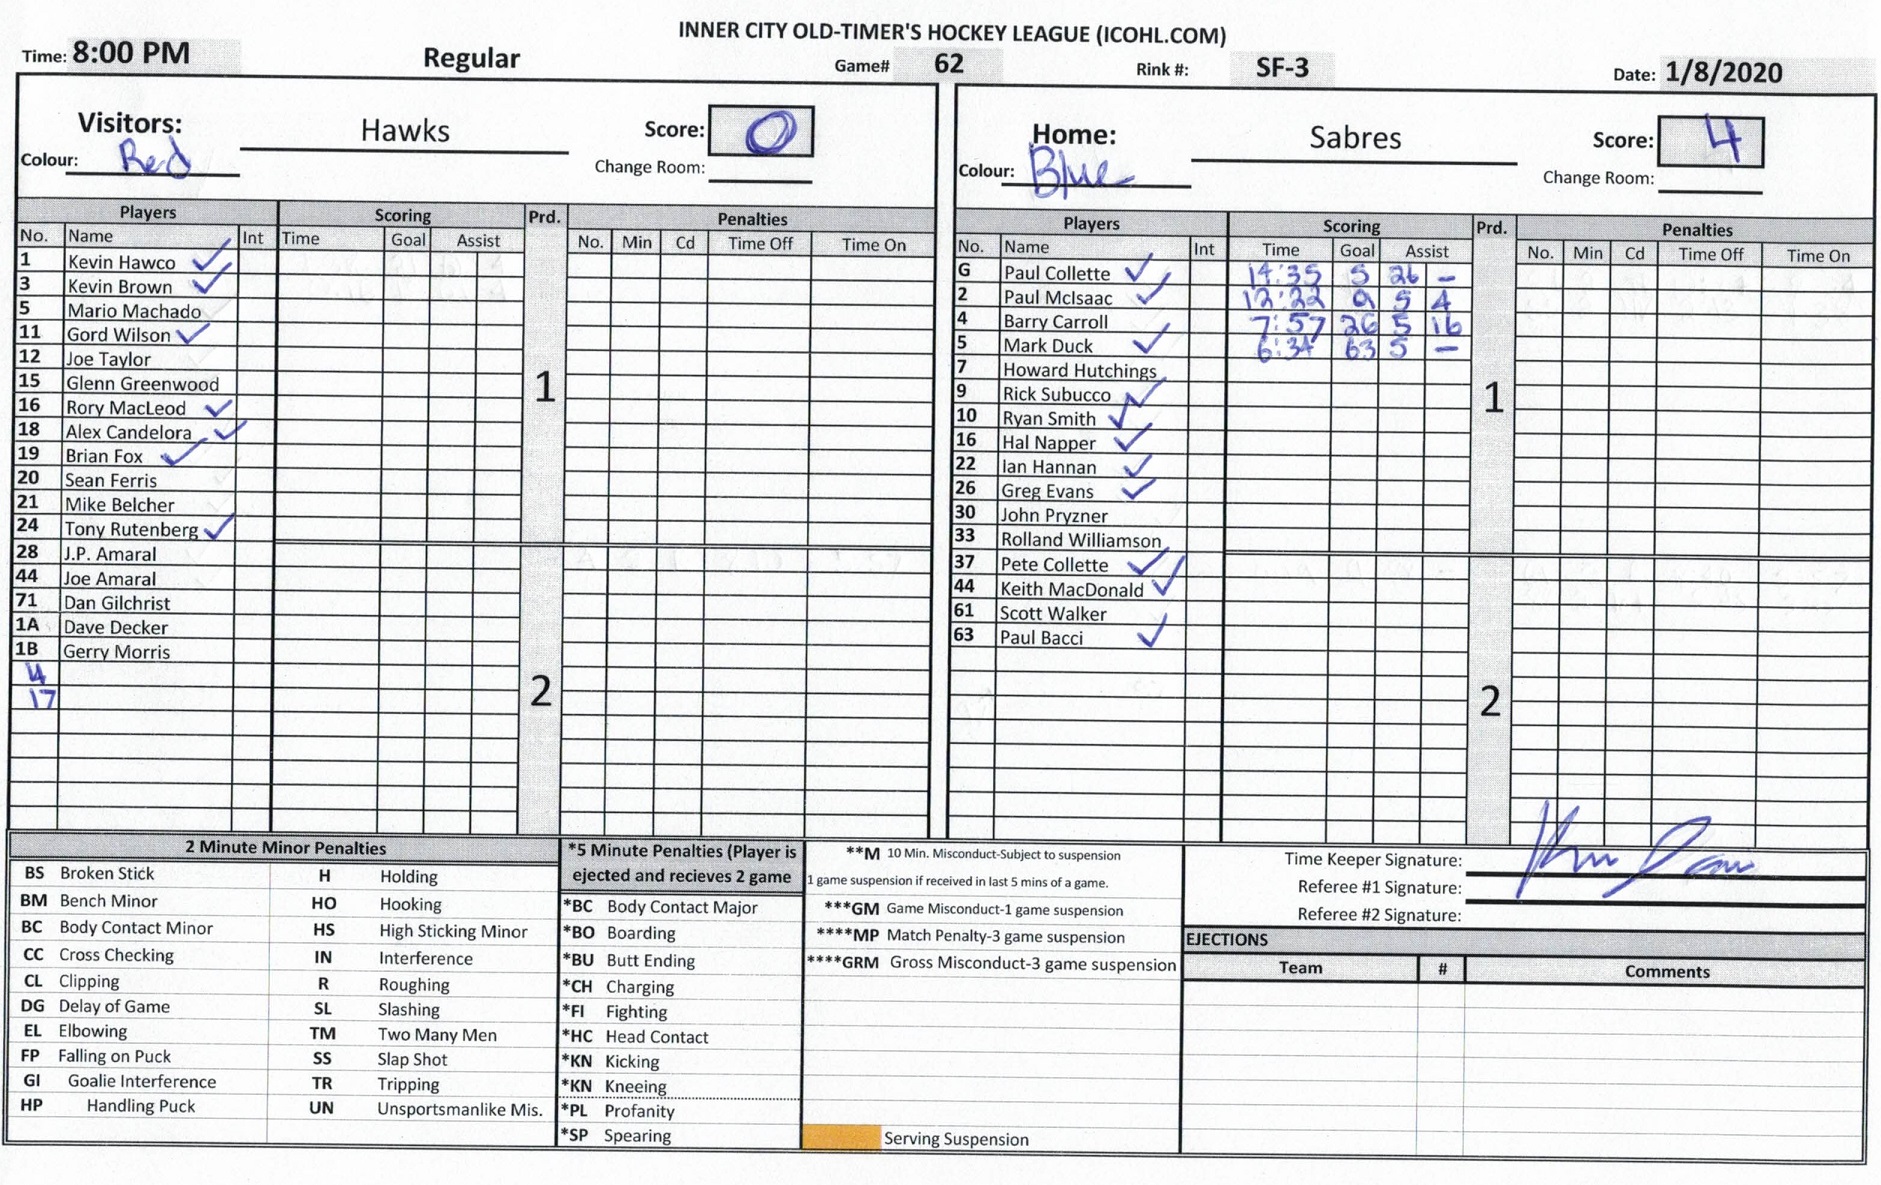 INNER CITY OLD-TIMER'S HOCKEY LEAGUE (ICOHL.COM)
Time: 8:00 PM Regular Game# 62 Rink #: SF-3 Date: 1/8/2020
Visitors: Hawks Score: 0
Colour: Red Change Room:
Players Scoring Prd. Penalties
No. Name Int Time Goal Assist No. Min Cd Time Off Time On
1 Kevin Hawco ✓
3 Kevin Brown ✓
5 Mario Machado
11 Gord Wilson ✓
12 Joe Taylor
15 Glenn Greenwood
1
16 Rory MacLeod ✓
18 Alex Candelora ✓
19 Brian Fox ✓
20 Sean Ferris
21 Mike Belcher
24 Tony Rutenberg ✓
28 J.P. Amaral
44 Joe Amaral
71 Dan Gilchrist
1A Dave Decker
1B Gerry Morris
2
17
Home: Sabres Score: 4
Colour: Blue Change Room:
Players Scoring Prd. Penalties
No. Name Int Time Goal Assist No. Min Cd Time Off Time On
G Paul Collette ✓ 14:35 5 26 -
2 Paul McIsaac ✓ 12:22 9 5 4
4 Barry Carroll 7:57 26 5 16
5 Mark Duck ✓ 6:34 63 5 -
7 Howard Hutchings
9 Rick Subucco ✓
1
10 Ryan Smith ✓
16 Hal Napper ✓
22 Ian Hannan ✓
26 Greg Evans ✓
30 John Pryzner
33 Rolland Williamson
37 Pete Collette ✓
44 Keith MacDonald ✓
61 Scott Walker
63 Paul Bacci ✓
2
2 Minute Minor Penalties
BS Broken Stick H Holding
BM Bench Minor HO Hooking
BC Body Contact Minor HS High Sticking Minor
CC Cross Checking IN Interference
CL Clipping R Roughing
DG Delay of Game SL Slashing
EL Elbowing TM Two Many Men
FP Falling on Puck SS Slap Shot
GI Goalie Interference TR Tripping
HP Handling Puck UN Unsportsmanlike Mis.
*5 Minute Penalties (Player is
ejected and recieves 2 game
*BC Body Contact Major
*BO Boarding
*BU Butt Ending
*CH Charging
*FI Fighting
*HC Head Contact
*KN Kicking
*KN Kneeing
*PL Profanity
*SP Spearing
**M 10 Min. Misconduct-Subject to suspension
1 game suspension if received in last 5 mins of a game.
***GM Game Misconduct-1 game suspension
****MP Match Penalty-3 game suspension
****GRM Gross Misconduct-3 game suspension
Serving Suspension
Time Keeper Signature:
Referee #1 Signature:
Referee #2 Signature:
EJECTIONS
Team # Comments